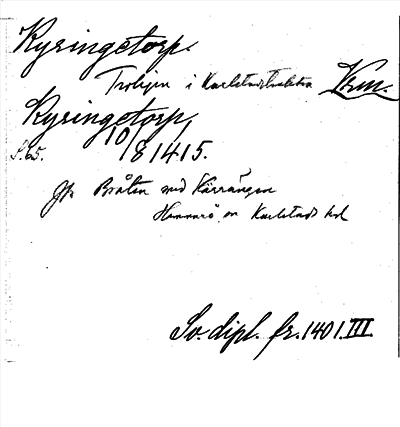 Kyringetorp.
Troligen i Karlstadtrakten Vrm.
Kyringetorp,
S. 65. 10/8 1415.
Jfr Bråten vid Kärrängen
Hammarö sn Karlstads hd
Sv. dipl. fr. 1401. III.